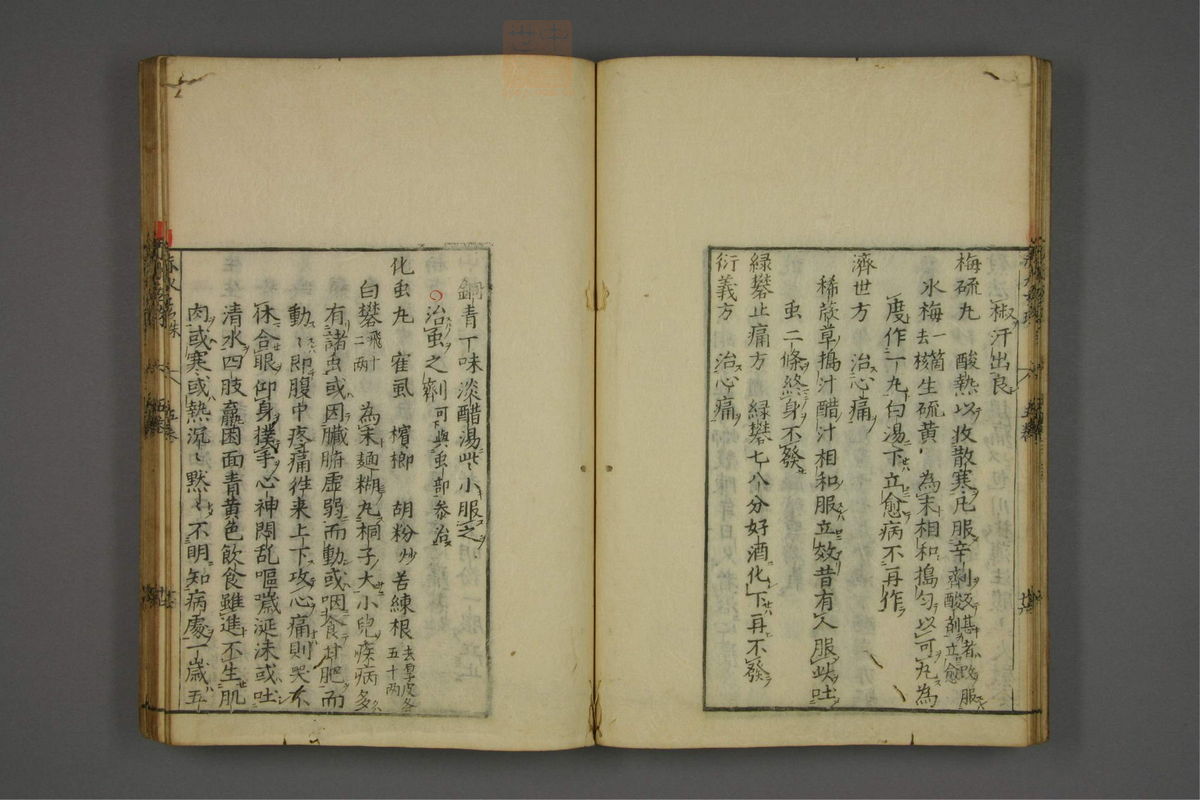 椒汗出良
梅硫丸 酸熱以收散寒凡服辛剤
水梅一箇去核生硫黄為末相和搗匀以可丸為
度作一丸白湯下立愈病不再作
濟世方 治心痛
稀薟草搗汁醋汁相和服立效昔有人服此吐
虫二條終身不發
緑礬止痛方 緑礬七个分好酒化下再不發
衍義方 治心痛
銅青一味淡醋湯些小服之
○治虫之劑可與虫部参治
化虫丸 隺虱 檳榔 胡粉炒 苦練根去厚皮各五十两
白礬飛十二两 為末麺糊丸桐子大小兒疾病多
有諸虫或因臓腑虚弱而動或因食甘肥而
動〻即腹中疼痛徃来上下攻心痛則哭不
休合眼仰身撲手心神悶乱嘔噦涎沫或吐
清水四肢羸困面青黄色飲食雖進不生肌
肉或寒或熱沉〻黙〻不明知病處一歳五